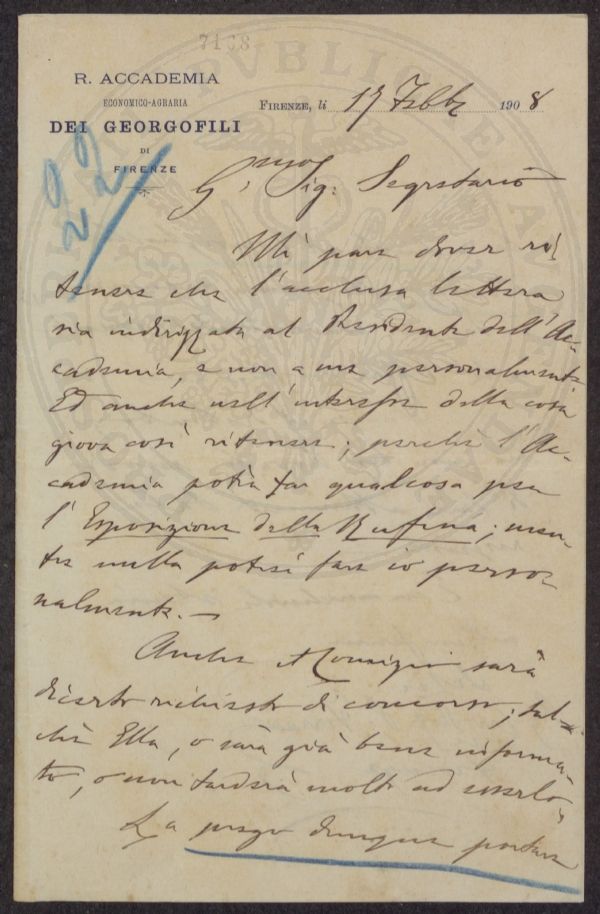 7168
R. ACCADEMIA
ECONOMICO-AGRARIA
DEI GEORGOFILI
DI
FIRENZE
FIRENZE, li 17 Febb. 1908
22
Sig: Segretario
Mi pare dover ri-
tenere che l'acclusa lettera
sia indirizzata al Presidente dell'Ac-
cademia, e non a me personalmente.
Ed anche nell'interesse della cosa
giova così ritenere; perchè l'Ac-
cademia potrà far qualcosa per
l'Esposizione della Rufina; men-
tre nulla potrei fare io perso-
nalmente. —
Anche sarà
di certo richiesto di concorso; tal-
chè Ella, o sarà già bene informa-
to, o non tarderà molto ad esserlo.
La prego dunque portare